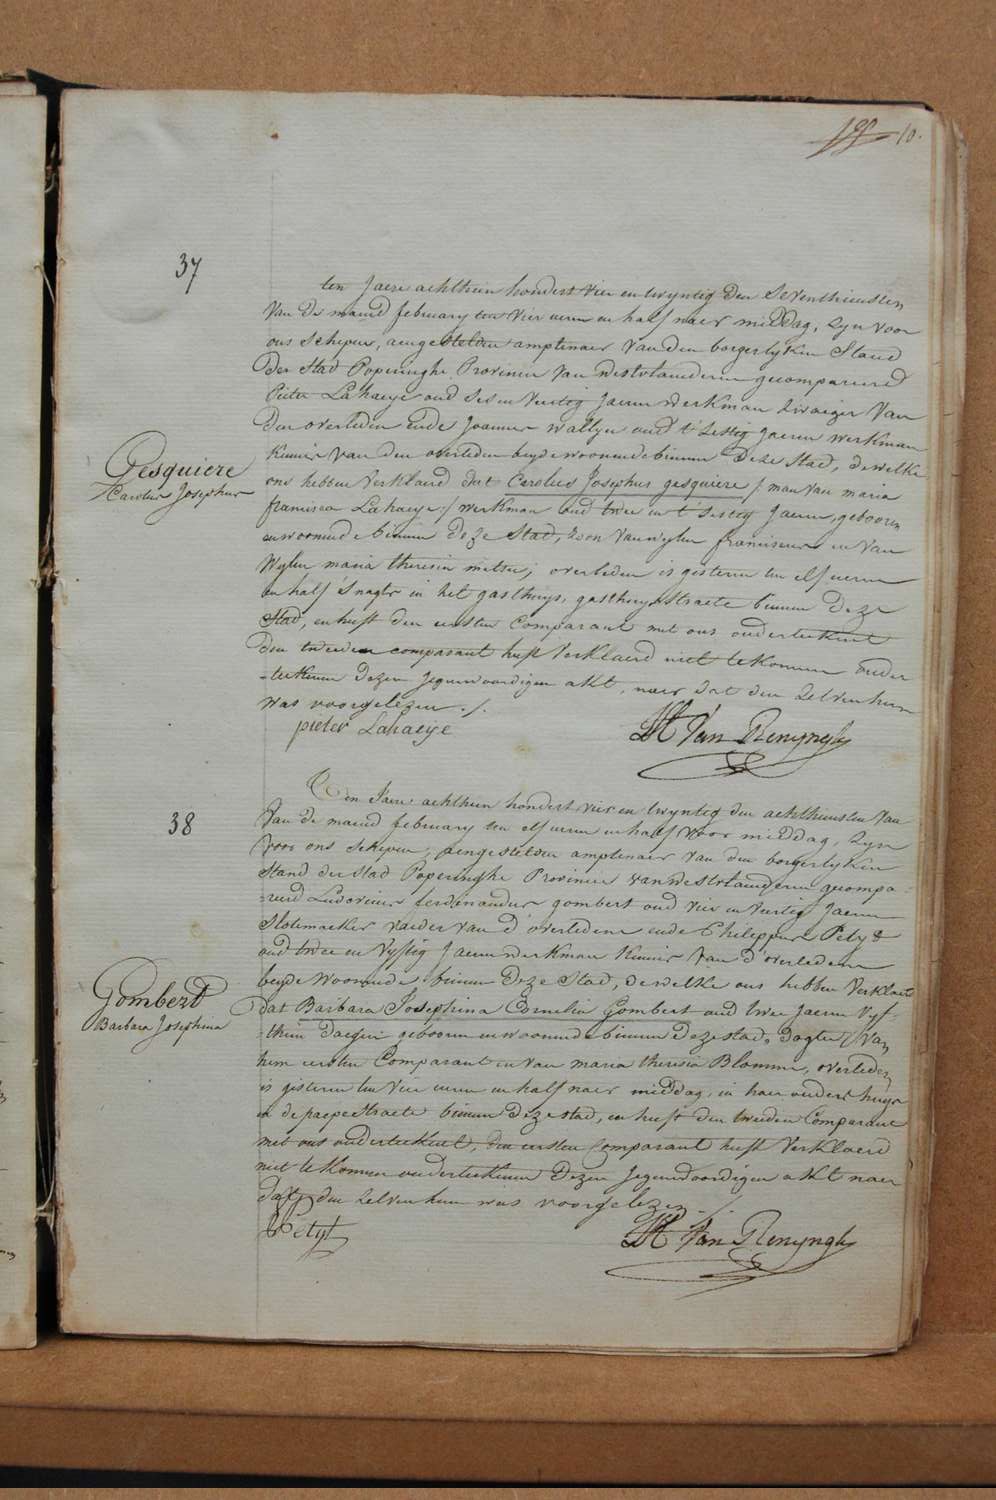 10.
37
ten Jaere achthien hondert vier en twyntig den Seventhiensten
van de maend february ten vier uren en half naer middag, zyn voor
ons schepen, aengestelden amptenaer van den borgerlyken Stand
der Stad Poperinghe Provincie van westvlaenderen gecompareerd
Pieter Lahaeye oud ses en veertig Jaeren werkman zwaeger van
den overleden ende Joannes wallyn oud t'sestig Jaeren werkman
kennis van den overleden beyde woonende binnen deze Stad, dewelke
Gesquiere
Carolus Josephus
ons hebben verklaerd dat Carolus Josephus gesquiere /: man van maria
francisca Lahaeye :/ werkman oud twee en t'sestig Jaeren, gebooren
en woonende binnen deze Stad, zoon van wylen franciscus en van
wylen maria theresia metsu; overleden is gisteren ten elf uren
en half s'nagts in het gasthuys, gasthuysstraete binnen deze
Stad, en heeft den eersten comparant met ons onderteekent
den tweeden comparant heeft verklaerd niet te konnen onder
-teekenen dezen jegenwoordigen akt, naer dat den zelven hun
was voorgelezen ./.
pieter Lahaeije
Van Renynghe
38
Den Jaere achthien hondert vier en twyntig den achthiensten van
van de maend february ten elf uren en half voor middag, zyn
voor ons schepen, aengestelden amptenaer van den borgerlyken
Stand der stad Poperinghe Provincie van westvlaenderen gecompa-
-reerd Ludovicus ferdinandus gombert oud vier en veertig Jaeren
Slotemaeker vaeder van d'overledene ende Philippus Petyt
oud twee en vyftig Jaeren werkman kennis van d'overledene
beyde woonende binnen deze Stad, dewelke ons hebben verklaert
Gombert
Barbara Josephina
dat Barbara Josephina Cornelia Gombert oud twee Jaeren vyf-
-thien daegen gebooren en woonende binnen deze stad, dogter van
hem eersten Comparant en van maria theresia Blomme, overleden
is gisteren ten vier uren en half naer middag, in haer ouders huys
in de paepestraete binnen deze stad, en heeft den tweeden Comparant
met ons onderteekent, den eersten comparant heeft verklaerd
niet te konnen onderteekenen dezen jegenwoordigen akt naer
dat den zelven hun was voorgelezen ./.
Petyt
Van Renynghe